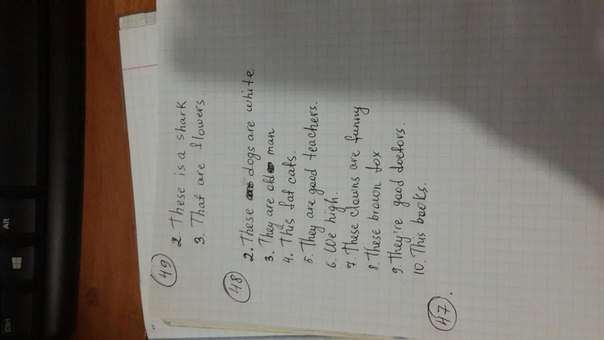 49
2 These is a shark
3. That are flowers
48
2. These dogs are white.
3. They are old man
4. This fat cats.
5. They are good teachers.
6. We high.
7. These clowns are funny
8. These brown fox
9. They're good doctors.
10. This books.
47.
Alt
Ctrl